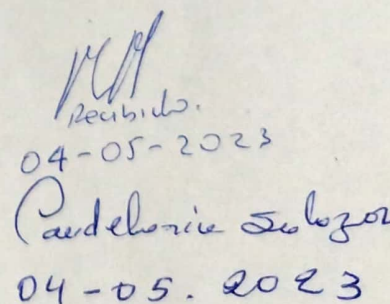 Recibido.
04-05-2023
Candelaria Salazar
04-05.2023